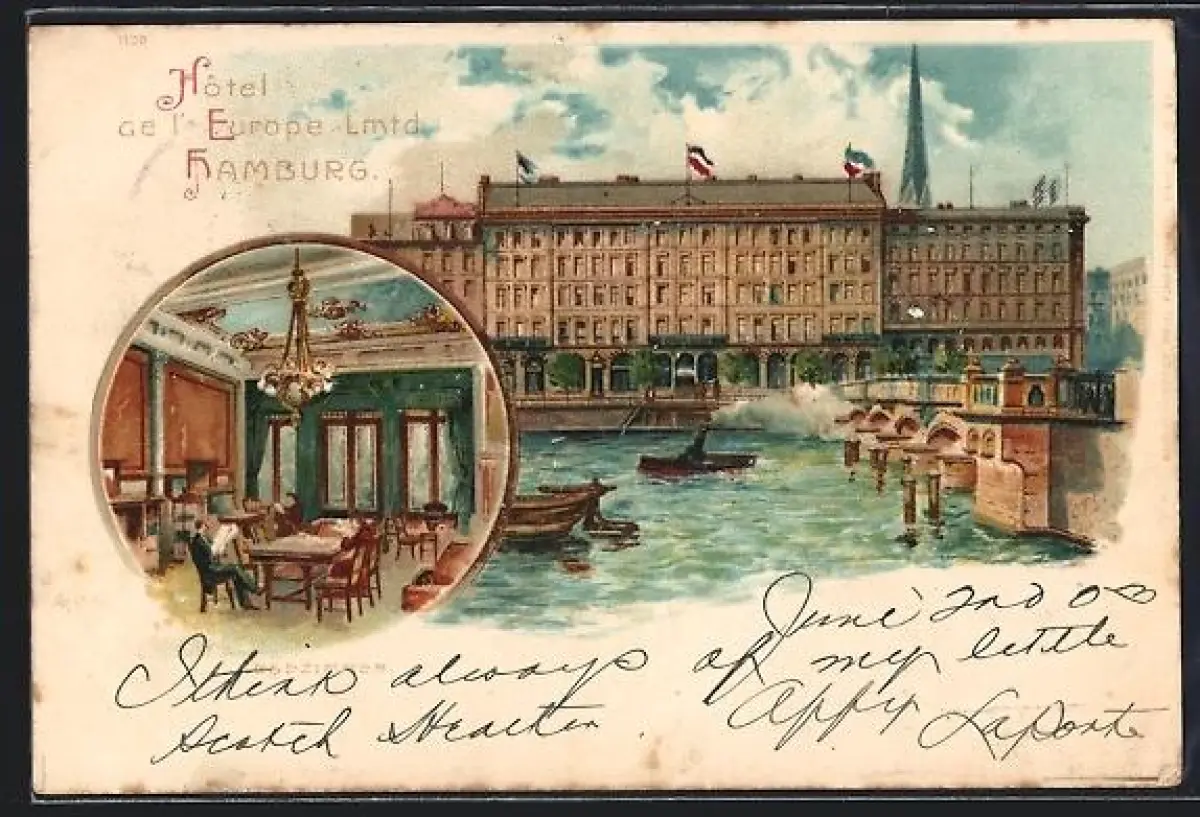 1130
Hôtel
de l'Europe Lmtd.
HAMBURG.
June 2nd 00
I think always of my little
Scotch Heather. Appy LaPorte